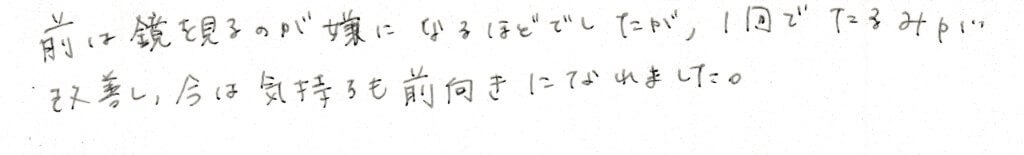 前は鏡を見るのが嫌になるほどでしたが，1回でたるみが
改善し，今は気持ちも前向きになれました。